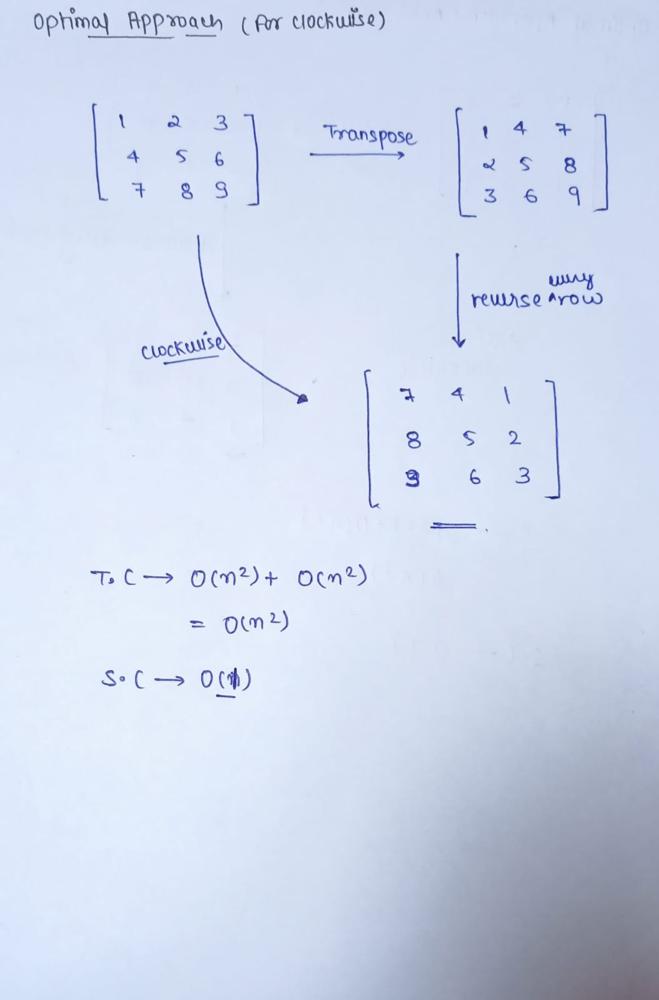 Optimal Approach (for clockwise)
1 2 3
4 5 6
7 8 9
Transpose
1 4 7
2 5 8
3 6 9
every
reverse ^row
clockwise
7 4 1
8 5 2
9 6 3
T.C → O(n²) + O(n²)
= O(n²)
S.C → O(1)